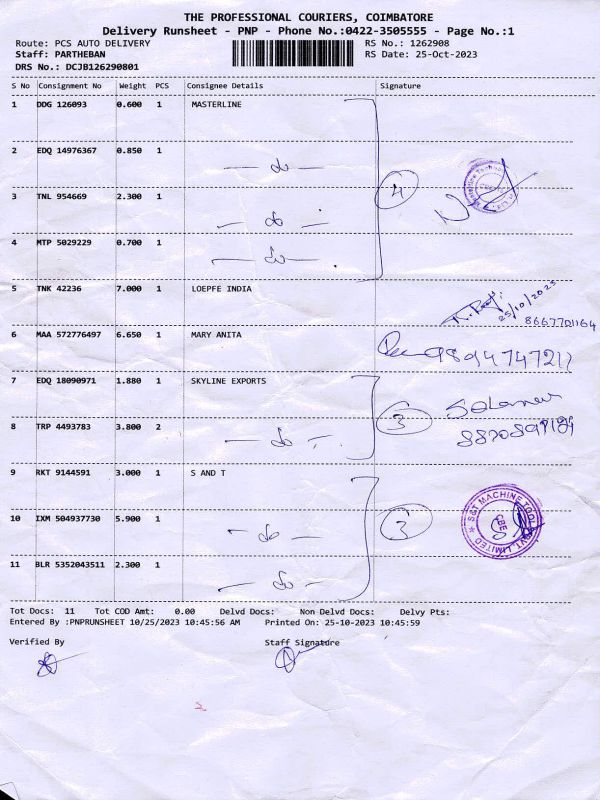 THE PROFESSIONAL COURIERS, COIMBATORE
Delivery Runsheet - PNP - Phone No.:0422-3505555 - Page No.:1
Route: PCS AUTO DELIVERY RS No.: 1262908
Staff: PARTHEBAN RS Date: 25-Oct-2023
DRS No.: DCJB126290801
S No Consignment No Weight PCS Consignee Details Signature
1 DDG 126093 0.600 1 MASTERLINE
2 EDQ 14976367 0.850 1 — do —
3 TNL 954669 2.300 1 — do —
4
4 MTP 5029229 0.700 1 — do —
5 TNK 42236 7.000 1 LOEPFE INDIA
25/10/2023
8667701164
6 MAA 572776497 6.650 1 MARY ANITA
9894747211
7 EDQ 18090971 1.880 1 SKYLINE EXPORTS
3
8 TRP 4493783 3.800 2 — do —
9 RKT 9144591 3.000 1 S AND T
S&T MACHINE TOOL PVT. LIMITED
CBE
3
10 IXM 504937730 5.900 1 — do —
11 BLR 5352043511 2.300 1 — do —
Tot Docs: 11 Tot COD Amt: 0.00 Delvd Docs: Non Delvd Docs: Delvy Pts:
Entered By :PNPRUNSHEET 10/25/2023 10:45:56 AM Printed On: 25-10-2023 10:45:59
Verified By Staff Signature